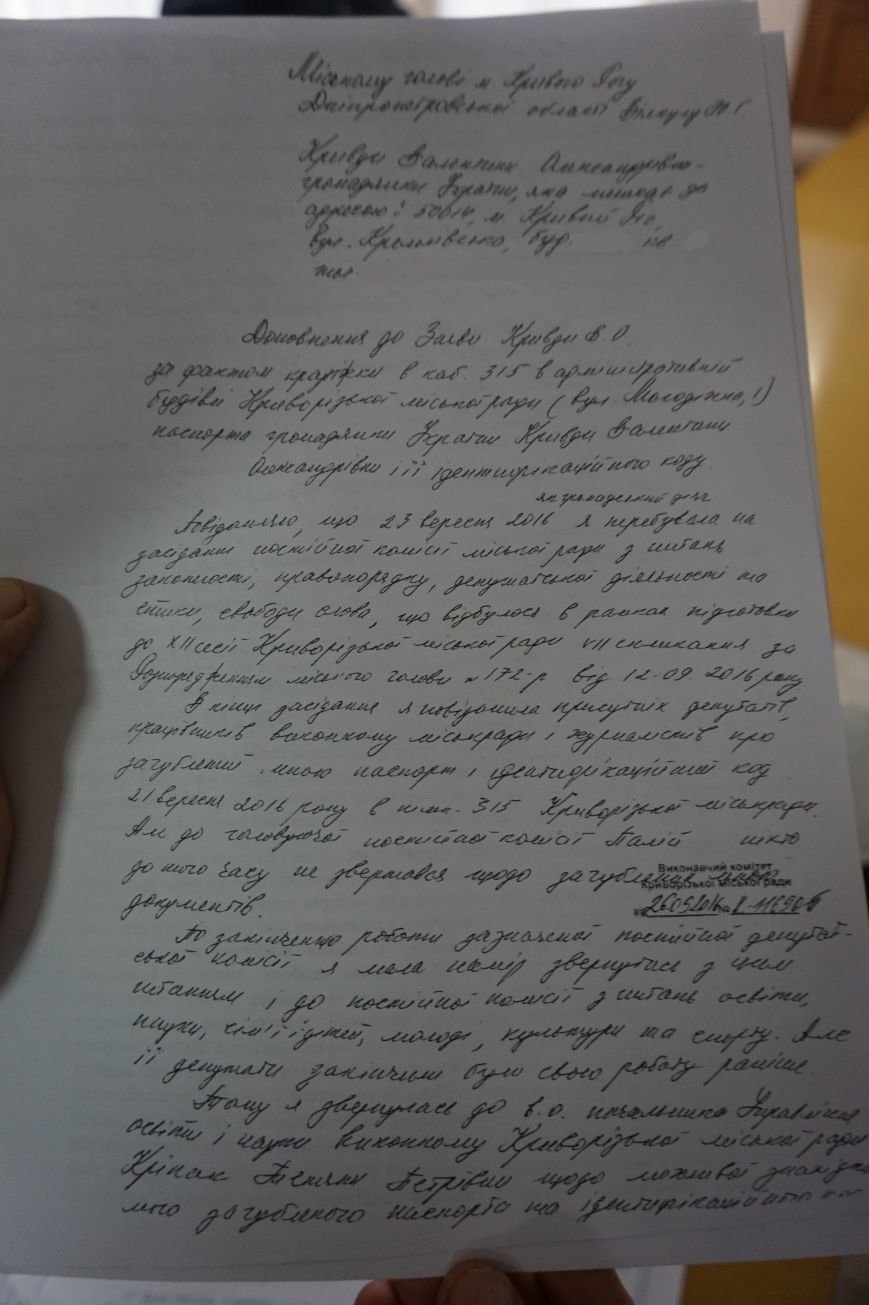 Міському голові м. Кривого Рогу
Дніпропетровської області Вілкулу Ю Г
Кривди Валентини Олександрівни
громадянки України, яка мешкає за
адресою: 50014, м. Кривий Ріг,
вул. буд. кв
тел.
Доповнення до Заяви Кривди В.О.
за фактом крадіжки в каб. 315 в адміністративній
будівлі Криворізької міської ради (вул. Молодіжна, 1)
паспорта громадянки України Кривди Валентини
Олександрівни і її ідентифікаційного коду.
як громадський діяч
Повідомляю, що 23 вересня 2016 я перебувала на
засіданні постійної комісії міської ради з питань
законності, правопорядку, депутатської діяльності та
етики, свободи слова, що відбулося в рамках підготовки
до XII сесії Криворізької міської ради VII скликання за
Розпорядженням міського голови № 172-р від 12.09.2016 року
В кінці засідання я повідомила присутніх депутатів,
працівників виконкому міськради і журналістів про
загублений мною паспорт і ідентифікаційний код
21 вересня 2016 року в кімн. 315 Криворізької міськради.
Але до головуючої постійної комісії Палій ніхто
до того часу не звертався щодо загублених мною
документів.
Виконавчий комітет
Криворізької міської ради
По закінченню роботи зазначеної постійної депутат-
ської комісії я мала намір звернутись з цим
питанням і до постійної комісії з питань освіти,
науки, сім'ї і дітей, молоді, культури та спорту. Але
її депутати закінчили були свою роботу раніше.
Тому я звернулась до в.о. начальника Управління
освіти і науки виконкому Криворізької міської ради
Кріпак Тетяни Петрівни щодо можливої
загубленого паспорта та ідентифікаційного